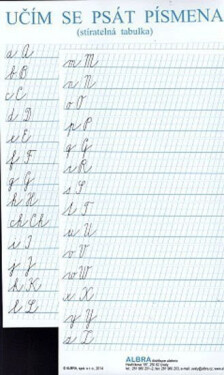 UČÍM SE PSÁT PÍSMENA
(stíratelná tabulka)
a A
b B
c C
d D
e E
f F
g G
h H
ch Ch
i I
j J
k K
l L
m M
n N
o O
p P
q G
r R
s S
t T
u U
v V
w W
x X
y Y
z Z
ALBRA